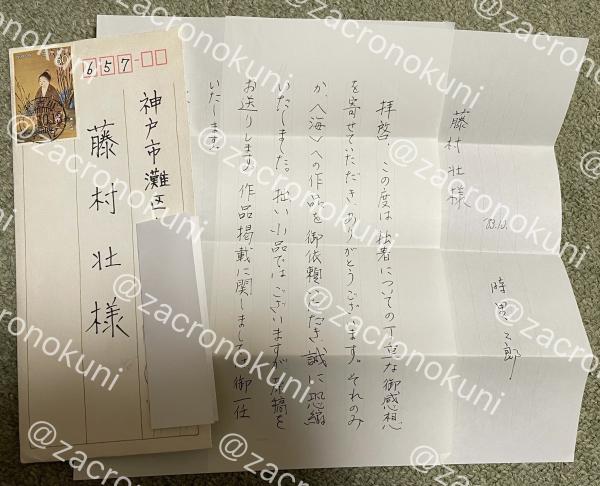 657
神戸市灘区
藤村壮様
時里二郎
'83.10.
藤村壮様
拝啓 この度は拙著についての丁重な御感想
を寄せていただき、ありがとうございます。それのみ
か、〈海〉への作品を御依頼いただき、誠に恐縮
いたしました。拙い小品ではございますが、原稿を
お送りします。作品掲載に関しましては御一任
いたします。
@zacronokuni